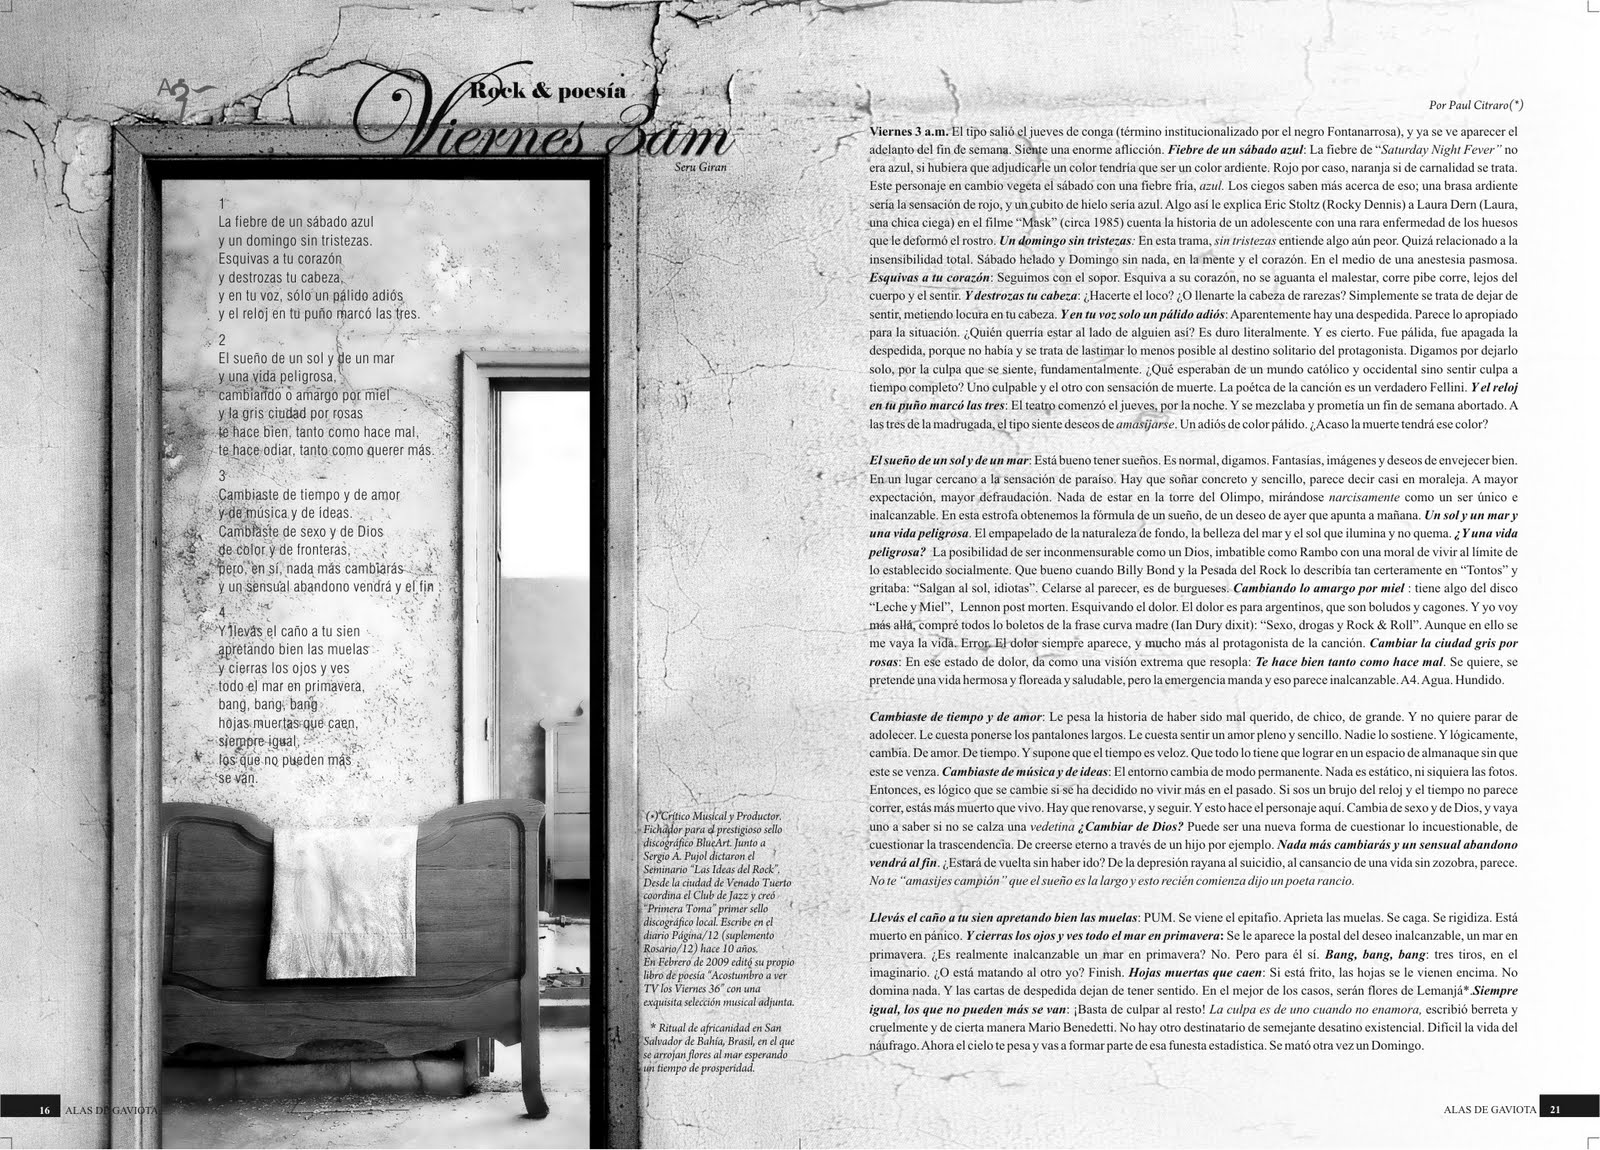 A3~
Rock & poesía
Viernes 3am
Seru Giran
1
La fiebre de un sábado azul
y un domingo sin tristezas.
Esquivas a tu corazón
y destrozas tu cabeza,
y en tu voz, sólo un pálido adiós
y el reloj en tu puño marcó las tres.
2
El sueño de un sol y de un mar
y una vida peligrosa,
cambiando o amargo por miel
y la gris ciudad por rosas
te hace bien, tanto como hace mal,
te hace odiar, tanto como querer más.
3
Cambiaste de tiempo y de amor
y de música y de ideas.
Cambiaste de sexo y de Dios
de color y de fronteras,
pero, en sí, nada más cambiarás
y un sensual abandono vendrá y el fin
4
Y llevás el caño a tu sien
apretando bien las muelas
y cierras los ojos y ves
todo el mar en primavera,
bang, bang, bang
hojas muertas que caen,
siempre igual,
los que no pueden más
se van.
(*) Crítico Musical y Productor.
Fichador para el prestigioso sello
discográfico BlueArt. Junto a
Sergio A. Pujol dictaron el
Seminario "Las Ideas del Rock".
Desde la ciudad de Venado Tuerto
coordina el Club de Jazz y creó
"Primera Toma" primer sello
discográfico local. Escribe en el
diario Página/12 (suplemento
Rosario/12) hace 10 años.
En Febrero de 2009 editó su propio
libro de poesía "Acostumbro a ver
TV los Viernes 36" con una
exquisita selección musical adjunta.
* Ritual de africanidad en San
Salvador de Bahía, Brasil, en el que
se arrojan flores al mar esperando
un tiempo de prosperidad.
16 ALAS DE GAVIOTA
Por Paul Citraro(*)
Viernes 3 a.m. El tipo salió el jueves de conga (término institucionalizado por el negro Fontanarrosa), y ya se ve aparecer el
adelanto del fin de semana. Siente una enorme aflicción. Fiebre de un sábado azul: La fiebre de "Saturday Night Fever" no
era azul, si hubiera que adjudicarle un color tendría que ser un color ardiente. Rojo por caso, naranja si de carnalidad se trata.
Este personaje en cambio vegeta el sábado con una fiebre fría, azul. Los ciegos saben más acerca de eso; una brasa ardiente
sería la sensación de rojo, y un cubito de hielo sería azul. Algo así le explica Eric Stoltz (Rocky Dennis) a Laura Dern (Laura,
una chica ciega) en el filme "Mask" (circa 1985) cuenta la historia de un adolescente con una rara enfermedad de los huesos
que le deformó el rostro. Un domingo sin tristezas: En esta trama, sin tristezas entiende algo aún peor. Quizá relacionado a la
insensibilidad total. Sábado helado y Domingo sin nada, en la mente y el corazón. En el medio de una anestesia pasmosa.
Esquivas a tu corazón: Seguimos con el sopor. Esquiva a su corazón, no se aguanta el malestar, corre pibe corre, lejos del
cuerpo y el sentir. Y destrozas tu cabeza: ¿Hacerte el loco? ¿O llenarte la cabeza de rarezas? Simplemente se trata de dejar de
sentir, metiendo locura en tu cabeza. Y en tu voz solo un pálido adiós: Aparentemente hay una despedida. Parece lo apropiado
para la situación. ¿Quién querría estar al lado de alguien así? Es duro literalmente. Y es cierto. Fue pálida, fue apagada la
despedida, porque no había y se trata de lastimar lo menos posible al destino solitario del protagonista. Digamos por dejarlo
solo, por la culpa que se siente, fundamentalmente. ¿Qué esperaban de un mundo católico y occidental sino sentir culpa a
tiempo completo? Uno culpable y el otro con sensación de muerte. La poétca de la canción es un verdadero Fellini. Y el reloj
en tu puño marcó las tres: El teatro comenzó el jueves, por la noche. Y se mezclaba y prometía un fin de semana abortado. A
las tres de la madrugada, el tipo siente deseos de amasijarse. Un adiós de color pálido. ¿Acaso la muerte tendrá ese color?
El sueño de un sol y de un mar: Está bueno tener sueños. Es normal, digamos. Fantasías, imágenes y deseos de envejecer bien.
En un lugar cercano a la sensación de paraíso. Hay que soñar concreto y sencillo, parece decir casi en moraleja. A mayor
expectación, mayor defraudación. Nada de estar en la torre del Olimpo, mirándose narcisamente como un ser único e
inalcanzable. En esta estrofa obtenemos la fórmula de un sueño, de un deseo de ayer que apunta a mañana. Un sol y un mar y
una vida peligrosa. El empapelado de la naturaleza de fondo, la belleza del mar y el sol que ilumina y no quema. ¿Y una vida
peligrosa? La posibilidad de ser inconmensurable como un Dios, imbatible como Rambo con una moral de vivir al límite de
lo establecido socialmente. Que bueno cuando Billy Bond y la Pesada del Rock lo describía tan certeramente en "Tontos" y
gritaba: "Salgan al sol, idiotas". Celarse al parecer, es de burgueses. Cambiando lo amargo por miel : tiene algo del disco
"Leche y Miel", Lennon post morten. Esquivando el dolor. El dolor es para argentinos, que son boludos y cagones. Y yo voy
más allá, compré todos lo boletos de la frase curva madre (Ian Dury dixit): "Sexo, drogas y Rock & Roll". Aunque en ello se
me vaya la vida. Error. El dolor siempre aparece, y mucho más al protagonista de la canción. Cambiar la ciudad gris por
rosas: En ese estado de dolor, da como una visión extrema que resopla: Te hace bien tanto como hace mal. Se quiere, se
pretende una vida hermosa y floreada y saludable, pero la emergencia manda y eso parece inalcanzable. A4. Agua. Hundido.
Cambiaste de tiempo y de amor: Le pesa la historia de haber sido mal querido, de chico, de grande. Y no quiere parar de
adolecer. Le cuesta ponerse los pantalones largos. Le cuesta sentir un amor pleno y sencillo. Nadie lo sostiene. Y lógicamente,
cambia. De amor. De tiempo. Y supone que el tiempo es veloz. Que todo lo tiene que lograr en un espacio de almanaque sin que
este se venza. Cambiaste de música y de ideas: El entorno cambia de modo permanente. Nada es estático, ni siquiera las fotos.
Entonces, es lógico que se cambie si se ha decidido no vivir más en el pasado. Si sos un brujo del reloj y el tiempo no parece
correr, estás más muerto que vivo. Hay que renovarse, y seguir. Y esto hace el personaje aquí. Cambia de sexo y de Dios, y vaya
uno a saber si no se calza una vedetina ¿Cambiar de Dios? Puede ser una nueva forma de cuestionar lo incuestionable, de
cuestionar la trascendencia. De creerse eterno a través de un hijo por ejemplo. Nada más cambiarás y un sensual abandono
vendrá al fin. ¿Estará de vuelta sin haber ido? De la depresión rayana al suicidio, al cansancio de una vida sin zozobra, parece.
No te "amasijes campión" que el sueño es la largo y esto recién comienza dijo un poeta rancio.
Llevás el caño a tu sien apretando bien las muelas: PUM. Se viene el epitafio. Aprieta las muelas. Se caga. Se rigidiza. Está
muerto en pánico. Y cierras los ojos y ves todo el mar en primavera: Se le aparece la postal del deseo inalcanzable, un mar en
primavera. ¿Es realmente inalcanzable un mar en primavera? No. Pero para él sí. Bang, bang, bang: tres tiros, en el
imaginario. ¿O está matando al otro yo? Finish. Hojas muertas que caen: Si está frito, las hojas se le vienen encima. No
domina nada. Y las cartas de despedida dejan de tener sentido. En el mejor de los casos, serán flores de Lemanjá*.Siempre
igual, los que no pueden más se van: ¡Basta de culpar al resto! La culpa es de uno cuando no enamora, escribió berreta y
cruelmente y de cierta manera Mario Benedetti. No hay otro destinatario de semejante desatino existencial. Difícil la vida del
náufrago. Ahora el cielo te pesa y vas a formar parte de esa funesta estadística. Se mató otra vez un Domingo.
ALAS DE GAVIOTA 21